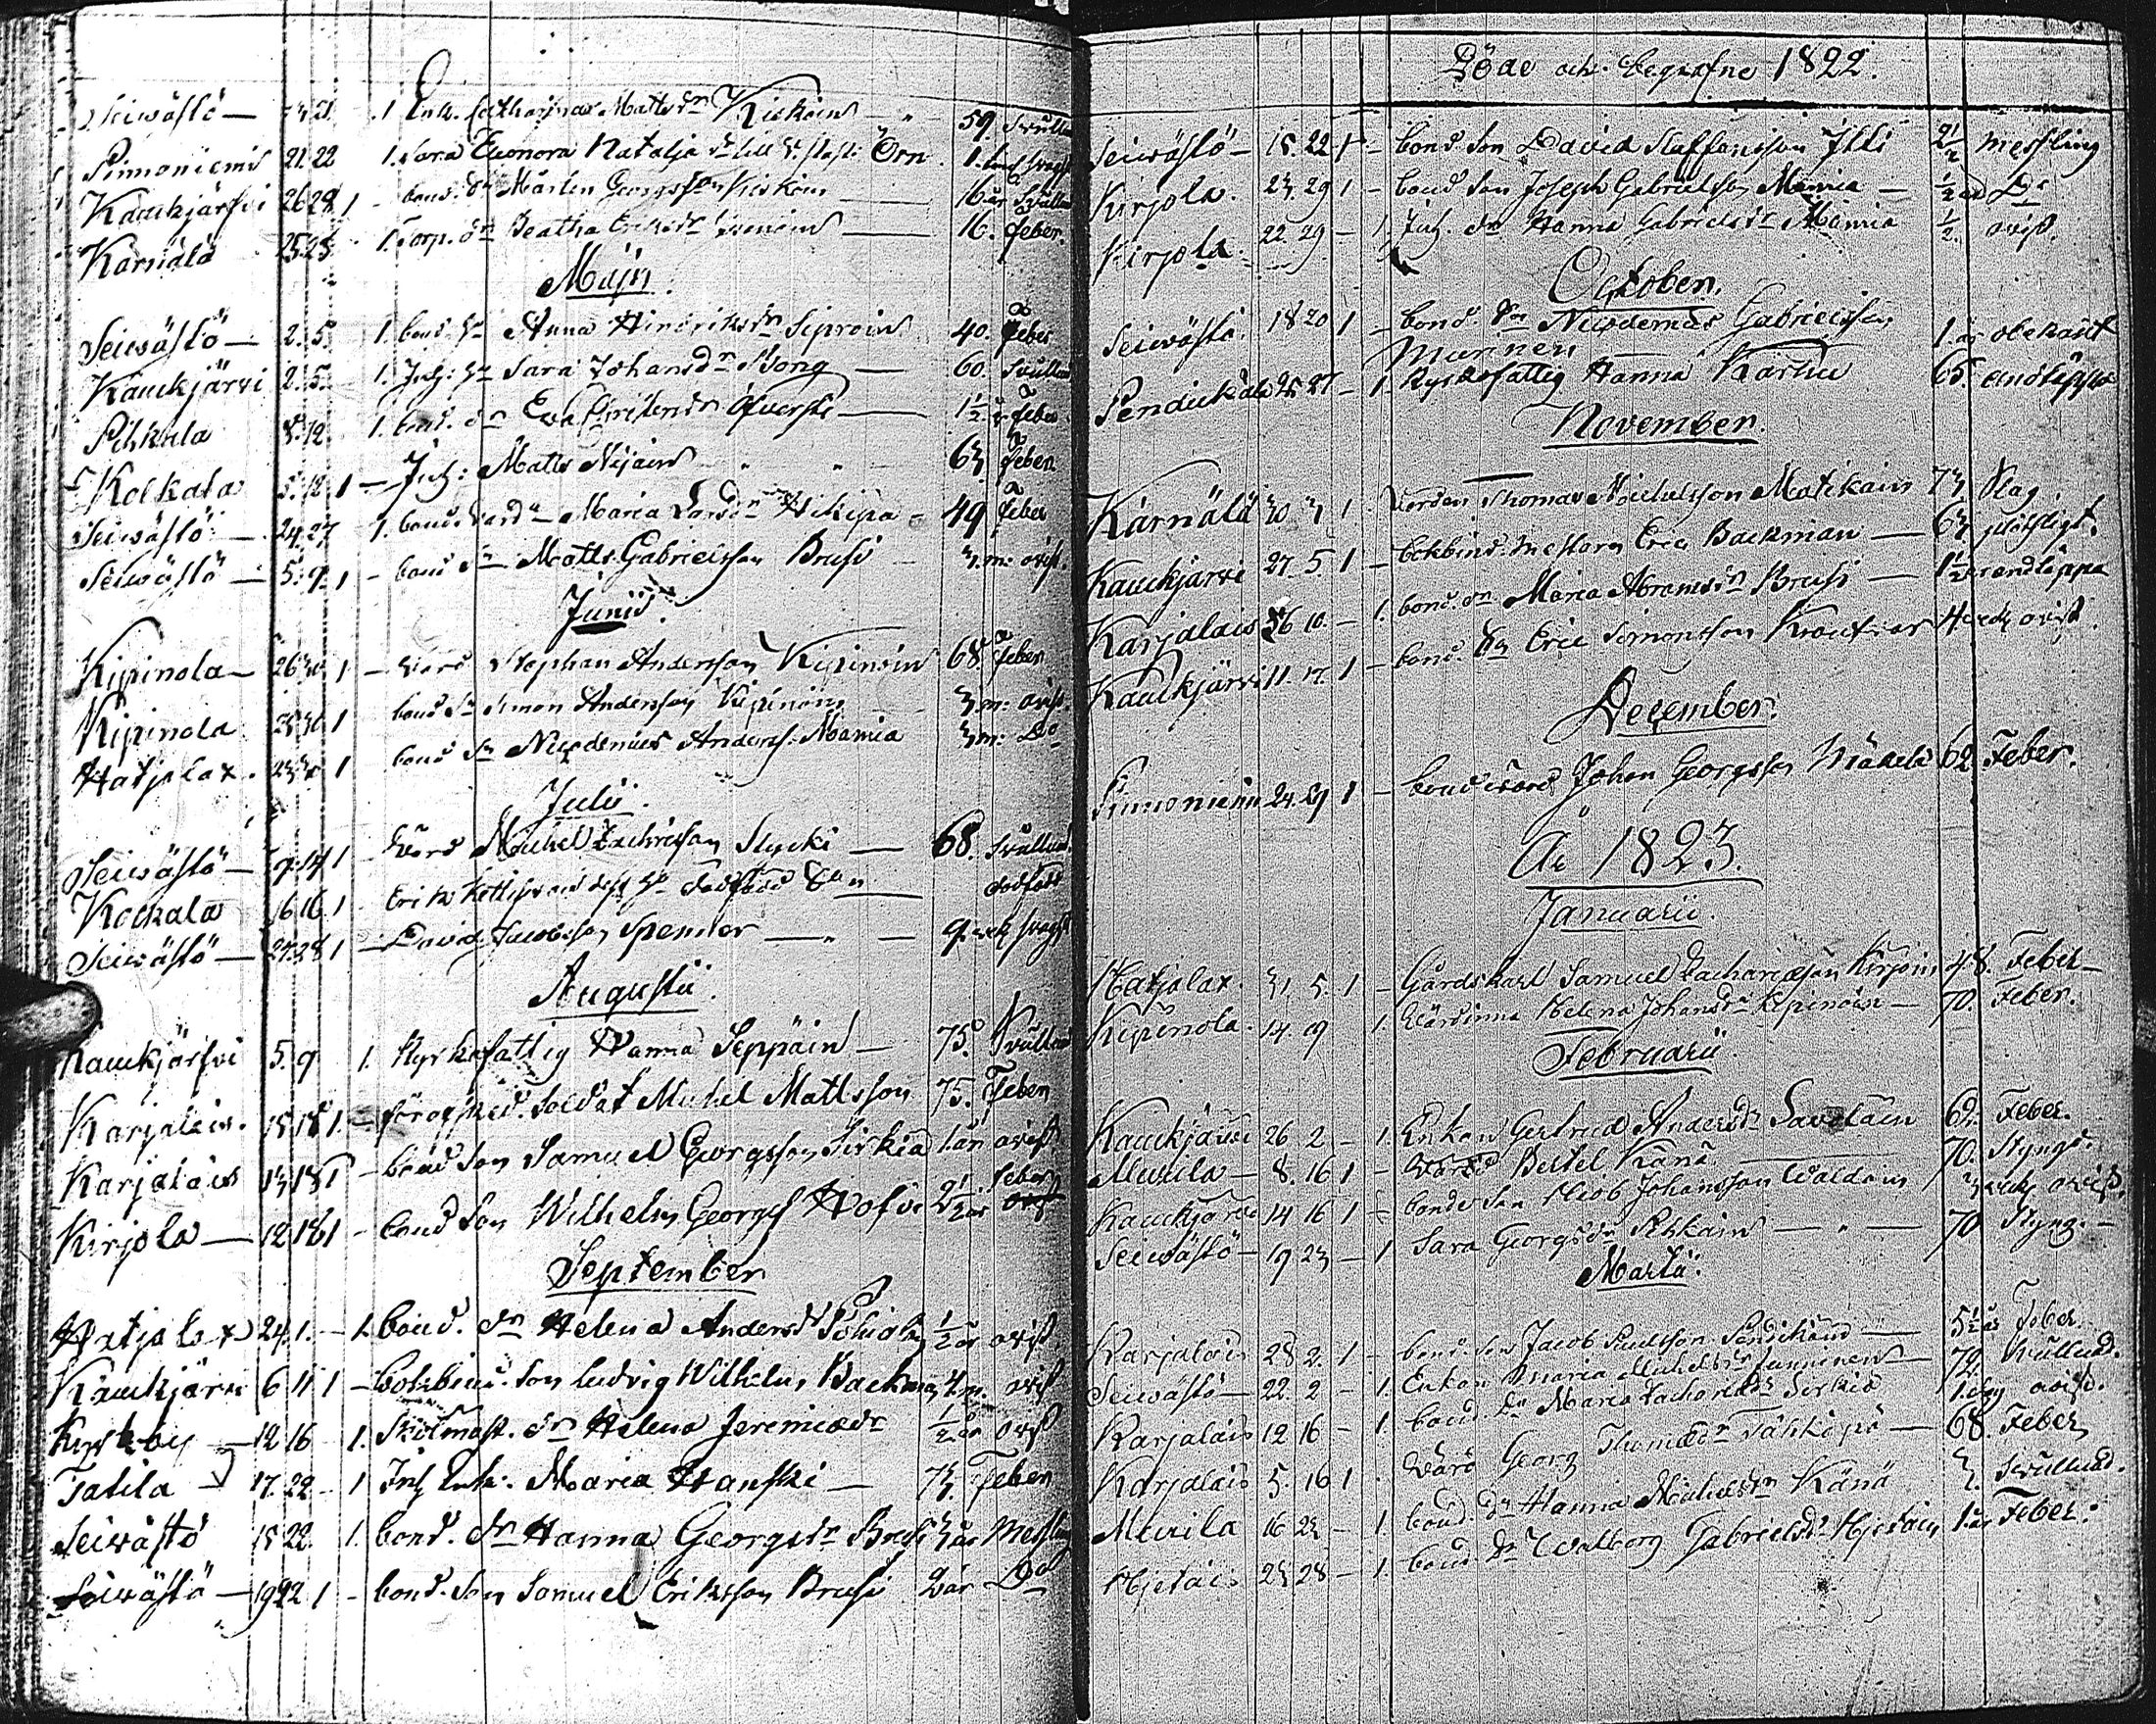 Seiwästö 1 Enk. Catharina Mattsdr Kiskoin 59 Svullnad
Pinnoniemi 21. 22 1. Sara Eleonora Natalja Örn 1.
Kaukjärfvi 26 28 1 - bond. Sn Mårten Georgsson Kiskoin 16 år Svullnad
Kärnälä 25 1. Torp. dr Beatha 16. feber.
Maji
Seiwästö 2. 5. 1. bond. Anna Hindriksdr Siproin 40. feber
Kaukjärvi 2. 5. 1. Inh: Sara Johansdr Bong 60. Svullnad
Pihkala 8. 12 1. bond. dr Eva 1½ år feber
Kolkala 5. 12 1 - Inh: Matts 63 feber
Seiwästö 24. 27 1. bond. Maria Larsdr Hikipä 49 feber
Seiwästö 5. 9. 1 - bond Sn Matts Gabrielsson Brusi 3. m: ovist.
Junii
Kipinola 26 30 1 - Stephan Andersson Kipinoin 68. feber
Kipinola 30 1 bond Sn Simon Andersson Kipinoin 3 m: ovist.
Hatjalax. 1 bond Sn Nicodemus Anderss. Mamia 3 m: Do
Julii.
Seiwästö 9. 14 1 - Värd Michel Zachrisson Stycki 68. Svullnad
Kockala 16 16. 1 - Erik dödfödd Son dödfödd
Seiwästö 27. 28 1 - David Jacobsson Spender 9. svaghet
Augusti.
Kaukjärfvi 5. 9 1. Kyrkofattig Hanna Seppäin 75. Svullnad
Karjalais. 15 18 1. - Soldat Michel Mattsson 75. Feber
Karjalais 13 18 1 - bond Son Samuel Georgsson Sirkiä 1. år ovist.
Kirjola 12 18 1 - bond Son Wilhelm Georgs Hofvi 2½ år feber
September
Hatjalax 24. 1. - 1. bond. dr Helena Andersdr Pohiala ½ år ovist.
Kaukjärvi 6 11 1 - bokbind. Son Ludvig Wilhelm Backman 4 m. ovist
Kyrkby 12 16 1. Skolmäst. dr Helena Jeremiædr ½ år ovist
Tatila 17. 22 - 1 Inh Enk: Maria Hanski 73. Feber
Seiwästö 15 22. 1. bond. dr Hanna Georgsdr Brusi 3 år Messling
Seiwästö 19 22. 1 - bond. Son Samuel Eriksson Brusi 2 år Do
Döde och begrafne 1822.
Seiwästö 15. 22. 1 - bond Son David Staffansson Illi 2½ Messling
Kirjola. 23. 29 1 - bond Son Joseph Gabrielsson Mamia ½ år Do
Kirjola 22. 29 - 1. Inh. dr Hanna Gabrielsdr Mamia ½. ovist.
October.
Seiwästö. 18 20 1 - bond Son Nicodemus Gabrielsson 1 år obekant
Murinen
Pendickälä 25 27 - 1. Kyrkofattig Hanna Karhu 65. andtäppa
November
Kärnälä 30 3 1. Värden Thomas Michelsson Matikain 73 Slag.
Kaukjärvi 27. 5. 1 - bokbind. mästarn Eric Backman 63 plötsligt.
Karjalais 6 10. - 1. bond. dr Maria Abramsdr Brusi 1½ år andtäppa
Kaukjärvi 11. 17. 1 - bond. Sn Eric Simonsson 4 veck ovist.
December.
Pinnoniemi 24. 29 1 - bond värd Johan Georgsson Mäkelä 62 Feber.
År 1823.
Januarii.
Hatjalax. 31. 5. 1 - Gårdskarl Samuel Zachariæson Kirjoin 48. Feber
Kipinola. 14. 19 1. Wärdinna Helena Johansdr Kipinoin 70. Feber.
Februarii.
Kaukjärvi 26 2 - 1. Enkan Gertrud Andersdr Savolain 62. Feber.
Muurila 8. 16 1 - Värd Bertel Känä 70. Styng.
Kaukjärvi 14 16 1 - bonde Son Hiob Johansson Waldain 3 veck ovist.
Seiwästö 19 23 - 1 Sara Georgsdr Pihkain 70 Styng.
Martii.
Karjalais 28 2. 1 - bond. Son Jacob Paulsson 5½ år Feber
Seiwästö 22. 2 - 1. Enkan Maria Michelsdr Junninen 72. Svullnad.
Karjalais 12 16 - 1. bond. Dr Maria Zachariædr Sirkiä 1. dag ovist.
Karjalais 5. 16 1. Värd Georg 68. Feber
Muurila 16 23 - 1. bond. dr Hanna Michelsdr Känä 3. Svullnad.
Hjetais 23 28 - 1. bond. Dr Walborg Gabrielsdr Hjetain 1. år Feber.